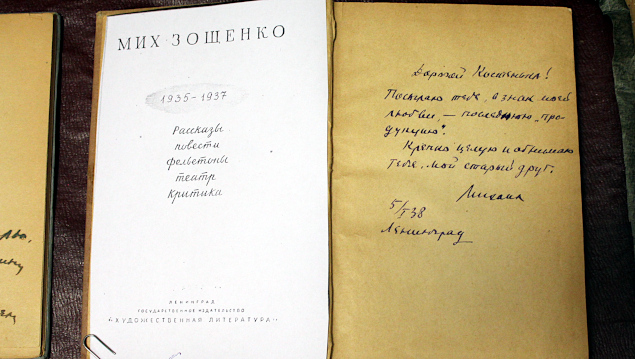 МИХ ЗОЩЕНКО
1935-1937
Рассказы
повести
фельетоны
театр
Критика
ЛЕНИНГРАД
ГОСУДАРСТВЕННОЕ ИЗДАТЕЛЬСТВО
"ХУДОЖЕСТВЕННАЯ ЛИТЕРАТУРА"
Дорогой !
Посылаю тебе, в знак моей
любви, — последнюю „про-
дукцию".
Крепко целую и обнимаю
тебя, мой старый друг.
Михаил
5/I 38
Ленинград